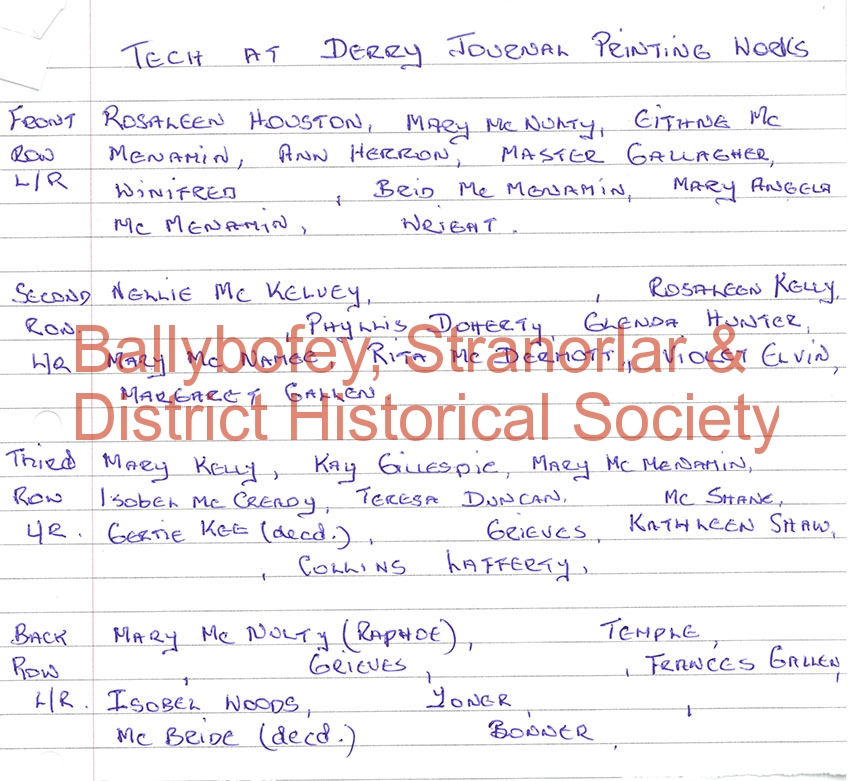 TECH AT DERRY JOURNAL PRINTING WORKS
FRONT ROSALEEN HOUSTON, MARY MC NULTY, EITHNE MC
ROW MENAMIN, ANN HERRON, MASTER GALLAGHER,
L/R WINIFRED , BRID MC MENAMIN, MARY ANGELA
MC MENAMIN, WRIGHT.
SECOND NELLIE MC KELVEY, , ROSALEEN KELLY,
ROW , PHYLLIS DOHERTY, GLENDA HUNTER,
L/R MARY MC NAMEE, RITA MC DERMOTT, VIOLET ELVIN,
MARGARET GALLEN
Ballybofey, Stranorlar &
District Historical Society
THIRD MARY KELLY, KAY GILLESPIE, MARY MC MENAMIN,
ROW ISOBEL MC CREADY, TERESA DUNCAN. MC SHANE,
L/R. GERTIE KEE (decd.), GRIEVES, KATHLEEN SHAW,
, COLLINS LAFFERTY,
BACK MARY MC NULTY (RAPHOE), TEMPLE,
ROW , GRIEVES , , FRANCES GALLEN,
L/R. ISOBEL WOODS, YONER, ,
MC BRIDE (decd.) BONNER,